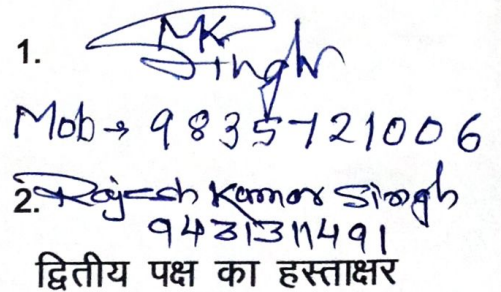 1. MK
Singh
Mob→ 9835721006
2. Rajesh Kumar Singh
9431311491
द्वितीय पक्ष का हस्ताक्षर